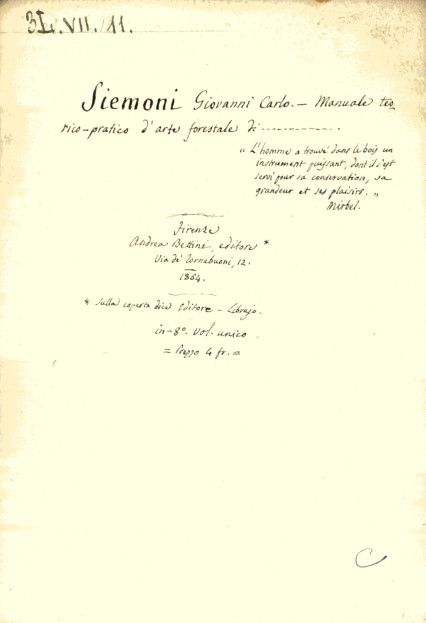 3L.VII.11.
Siemoni Giovanni Carlo. — Manuale teo
rico-pratico d'arte forestale di ------------.
" L'homme a trouvé dans le bois un
instrument puissant, dont il s'est
servi pour sa conservation, sa
grandeur et ses plaisirs. "
Mirbel.
Firenze
Andrea Bettini, editore *
Via de' Tornabuoni, 12.
1864.
* sulla coperta dice Editore - Librajo.
in-8º. vol. unico
= Prezzo 4 fr. =